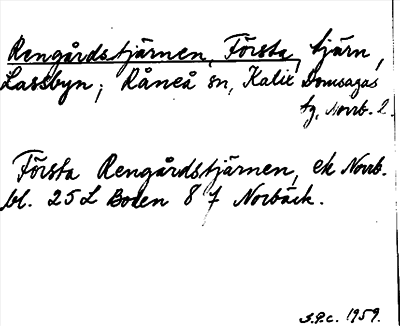 Rengårdstjärnen, Första, tjärn,
Lassbyn; Råneå sn, Kalix Domsagas
tg, Norrb. l.
Första Rengårdstjärnen, ek Norrb.
bl. 25 L Boden 8 f Norbäck.
S.P.C. 1959.